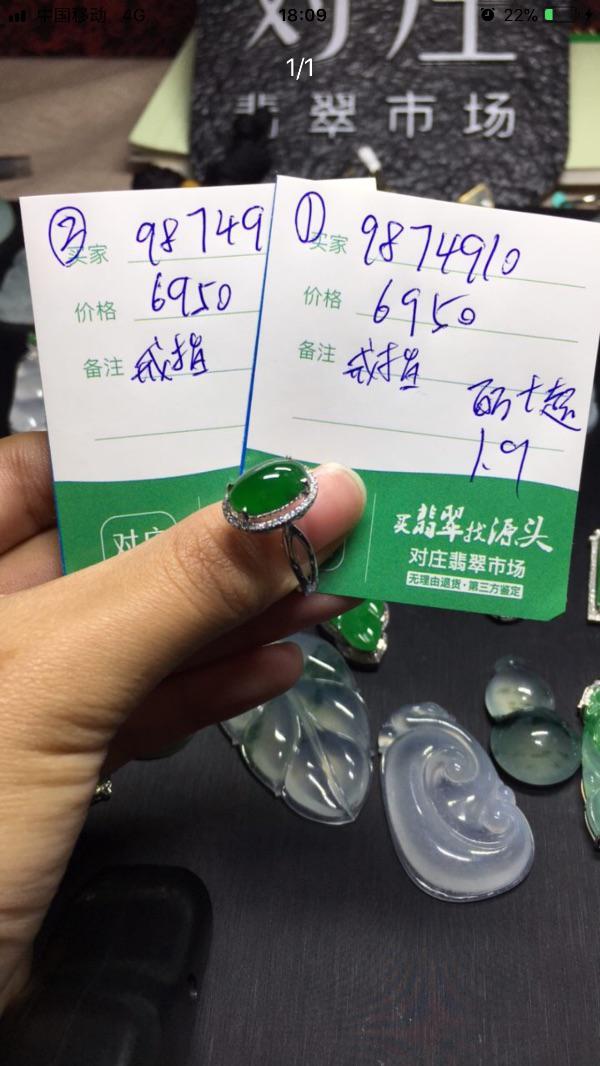 中国移动 4G 18:09 22%
1/1
对庄
翡翠市场
② 买家 98749
价格 6950
备注 戒指
对庄
① 买家 9874910
价格 6950
备注 戒指
1.9
买翡翠找源头
对庄翡翠市场
无理由退货·第三方鉴定